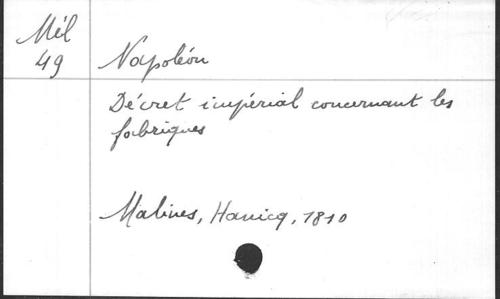 Mél
49
Napoléon
Décret impérial concernant les
fabriques
Malines, Hanicq, 1810